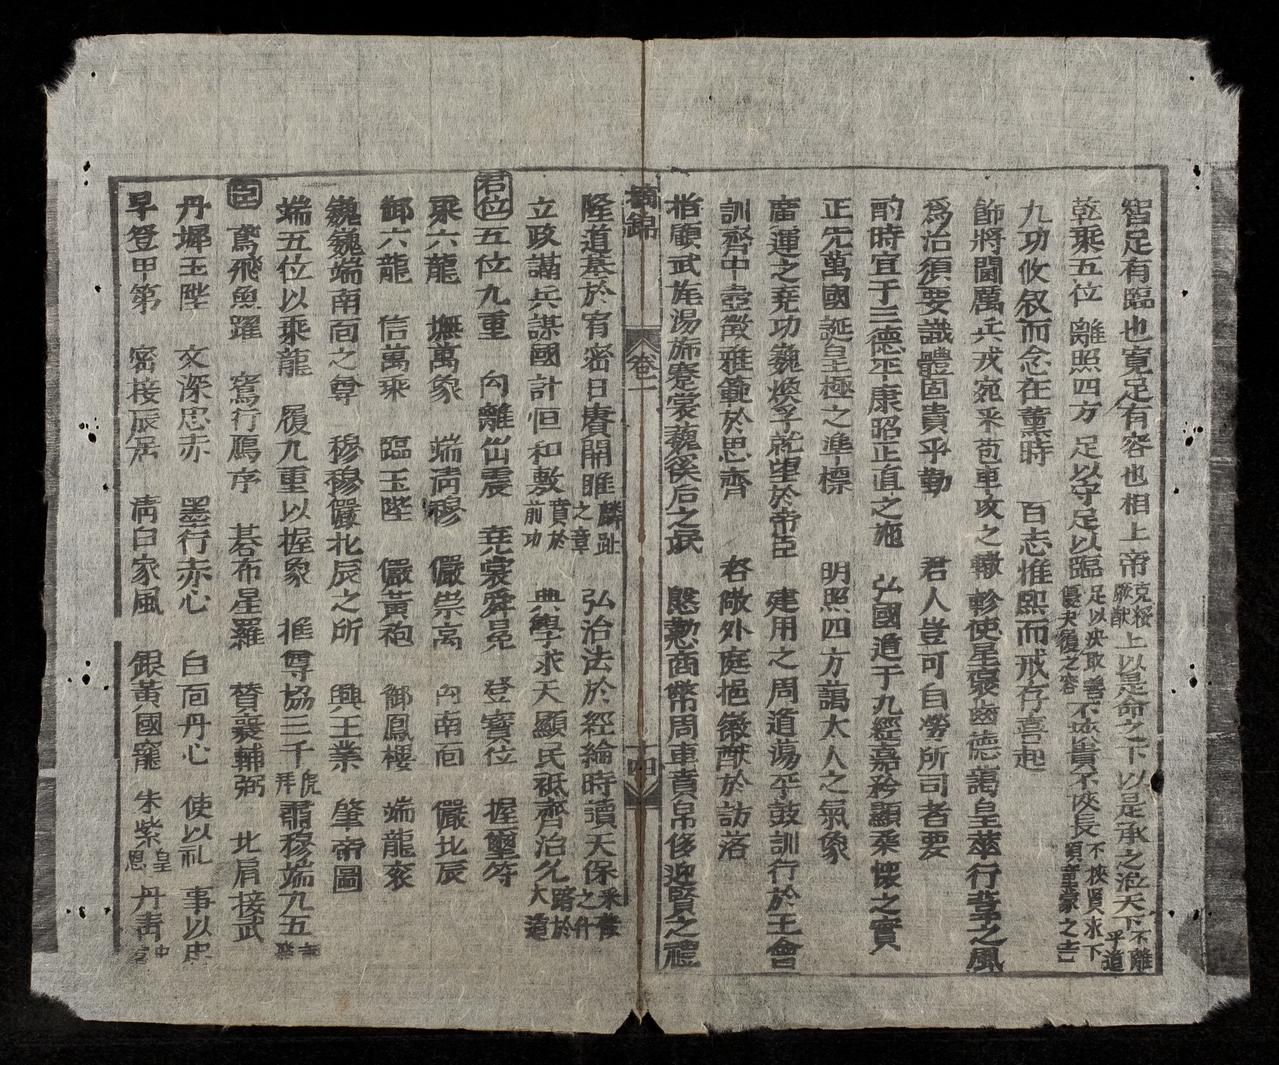 智足有臨也寬足有容也相上帝克綏厥猷上以是命之下以是承之涖天下不離乎道
乾乘五位 離照四方 足以守足以臨足以決取善優夫後之容不挾貴不挾長不挾賢求下須童蒙之吉
九功攸叙而念在董時 百志惟熙而戒存喜起
飾將閫厲六戎宛釆苞車攻之轍 軫使星褒齒德藹皇華行葦之風
爲治須要識體固貴乎勤 君人豈可自勞所司者要
酌時宜于三德平康昭正直之施 弘國道于九經嘉矜顯柔懷之實
正元萬國誕皇極之準標 明照四方藹大人之氣象
膺運之堯功巍煥孚就望於帝臣 建用之周道蕩平鼓訓行於王會
訓齊中壼徵雅範於思齊 容啟外庭挹徽猷於訪落
指顧武旄湯斾褰裳藐後后之武 慇懃商幣周車賁帛侈迎賢之禮
摘錦
卷一
十四
隆道基於宥密日賡關雎麟趾之章 弘治法於經綸時讀天保采薇之什
立政講兵謀國計恒和敷賁於前功 典學求天顯民祗齊治久路於大道
君位 五位九重 向離出震 堯裳舜冕 登寶位 握璽符
乘六龍 撫萬象 端淸穆 儼崇高 向南面 儼北辰
御六龍 信萬乘 臨玉陛 儼黃袍 御鳳樓 端龍衮
巍巍端南面之尊 穆穆儼北辰之所 興王業 肇帝圖
端五位以乘龍 履九重以握象 推尊協三千虎拜肅穆端九五
臣 鳶飛魚躍 鴛行鴈序 碁布星羅 賛襄輔弼 比肩接武
丹墀玉陛 文深思赤 墨行赤心 白面丹心 使以礼 事以忠
早登甲第 密接辰居 淸白家風 銀黃國寵 朱紫皇恩 丹靑